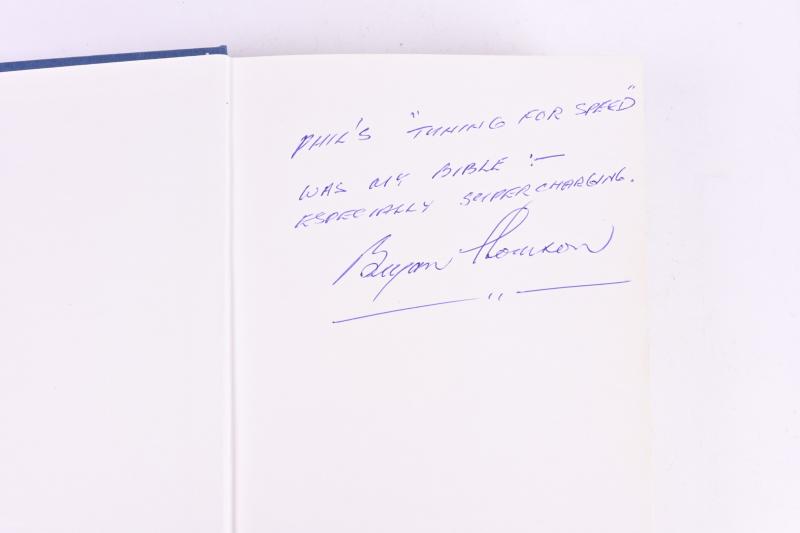 PHIL'S "TUNING FOR SPEED"
WAS MY BIBLE :—
ESPECIALLY SUPERCHARGING.
Bryan Thomson